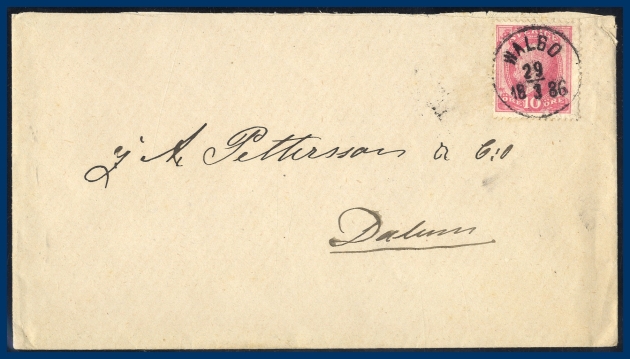 SVERIGE
WALBO
29
18 3 86
10 ÖRE
J A Pettersson & C:o
Dalum